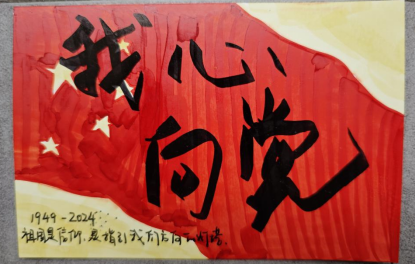 我心
向党
1949-2024
祖国是信仰,是指引我们前方的灯塔。